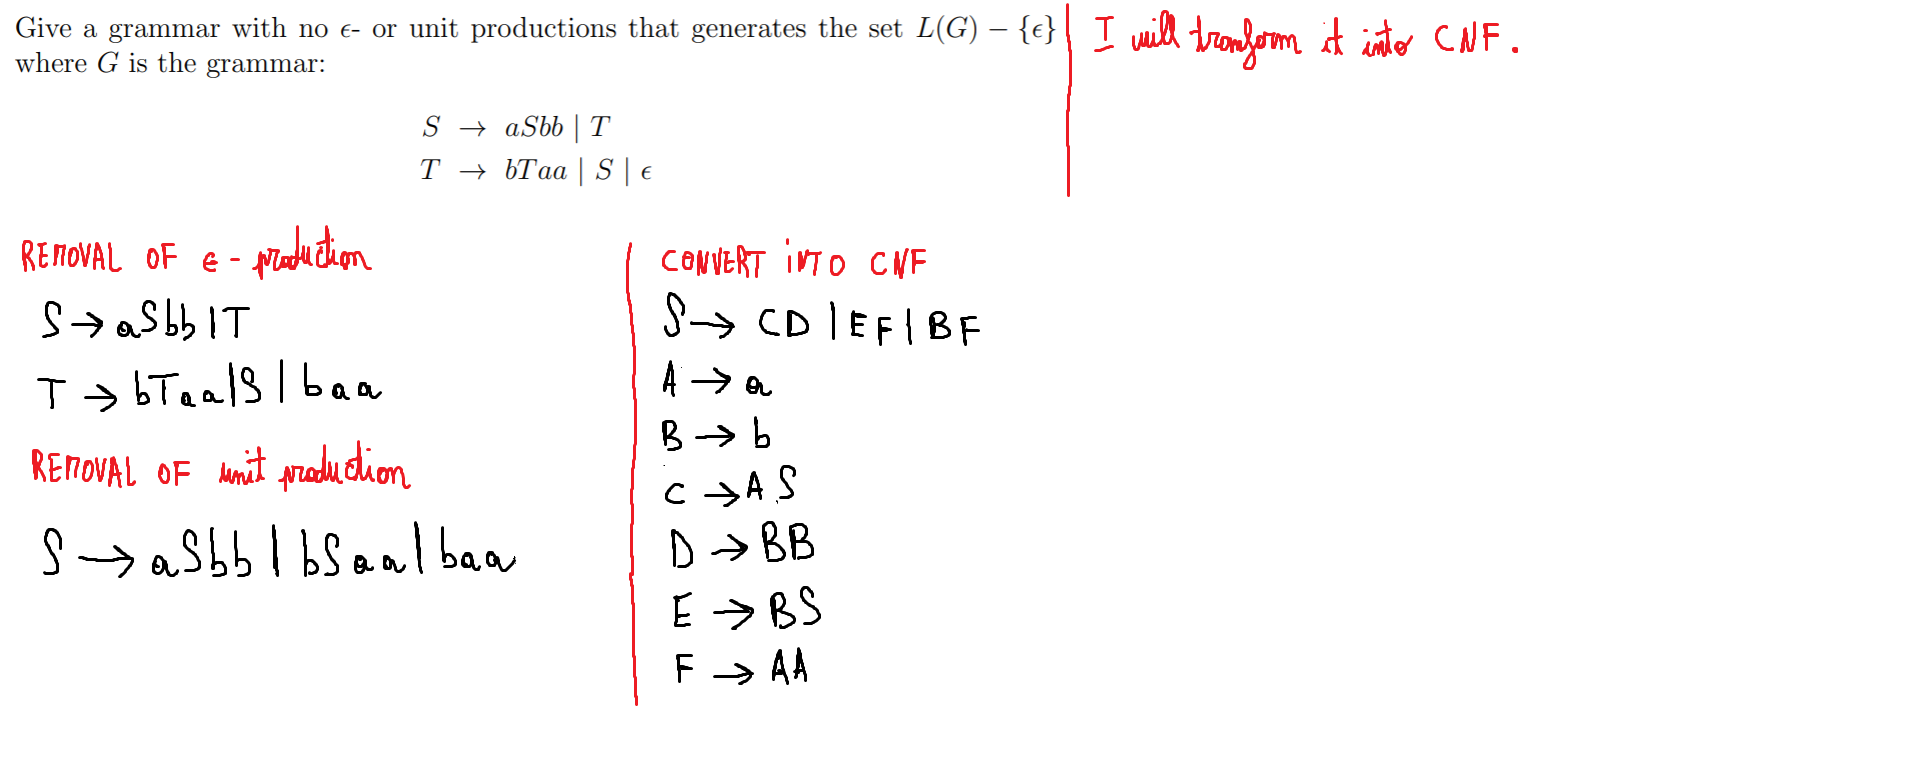 Give a grammar with no ϵ- or unit productions that generates the set L(G) − {ϵ}
where G is the grammar:
S → aSbb | T
T → bTaa | S | ϵ
I will tronform it into CNF.
REMOVAL OF ϵ - production
S → aSbb | T
T → bTaa | S | baa
REMOVAL OF unit production
S → aSbb | bSaa | baa
CONVERT iNTO CNF
S → CD | EF | BF
A → a
B → b
C → AS
D → BB
E → BS
F → AA